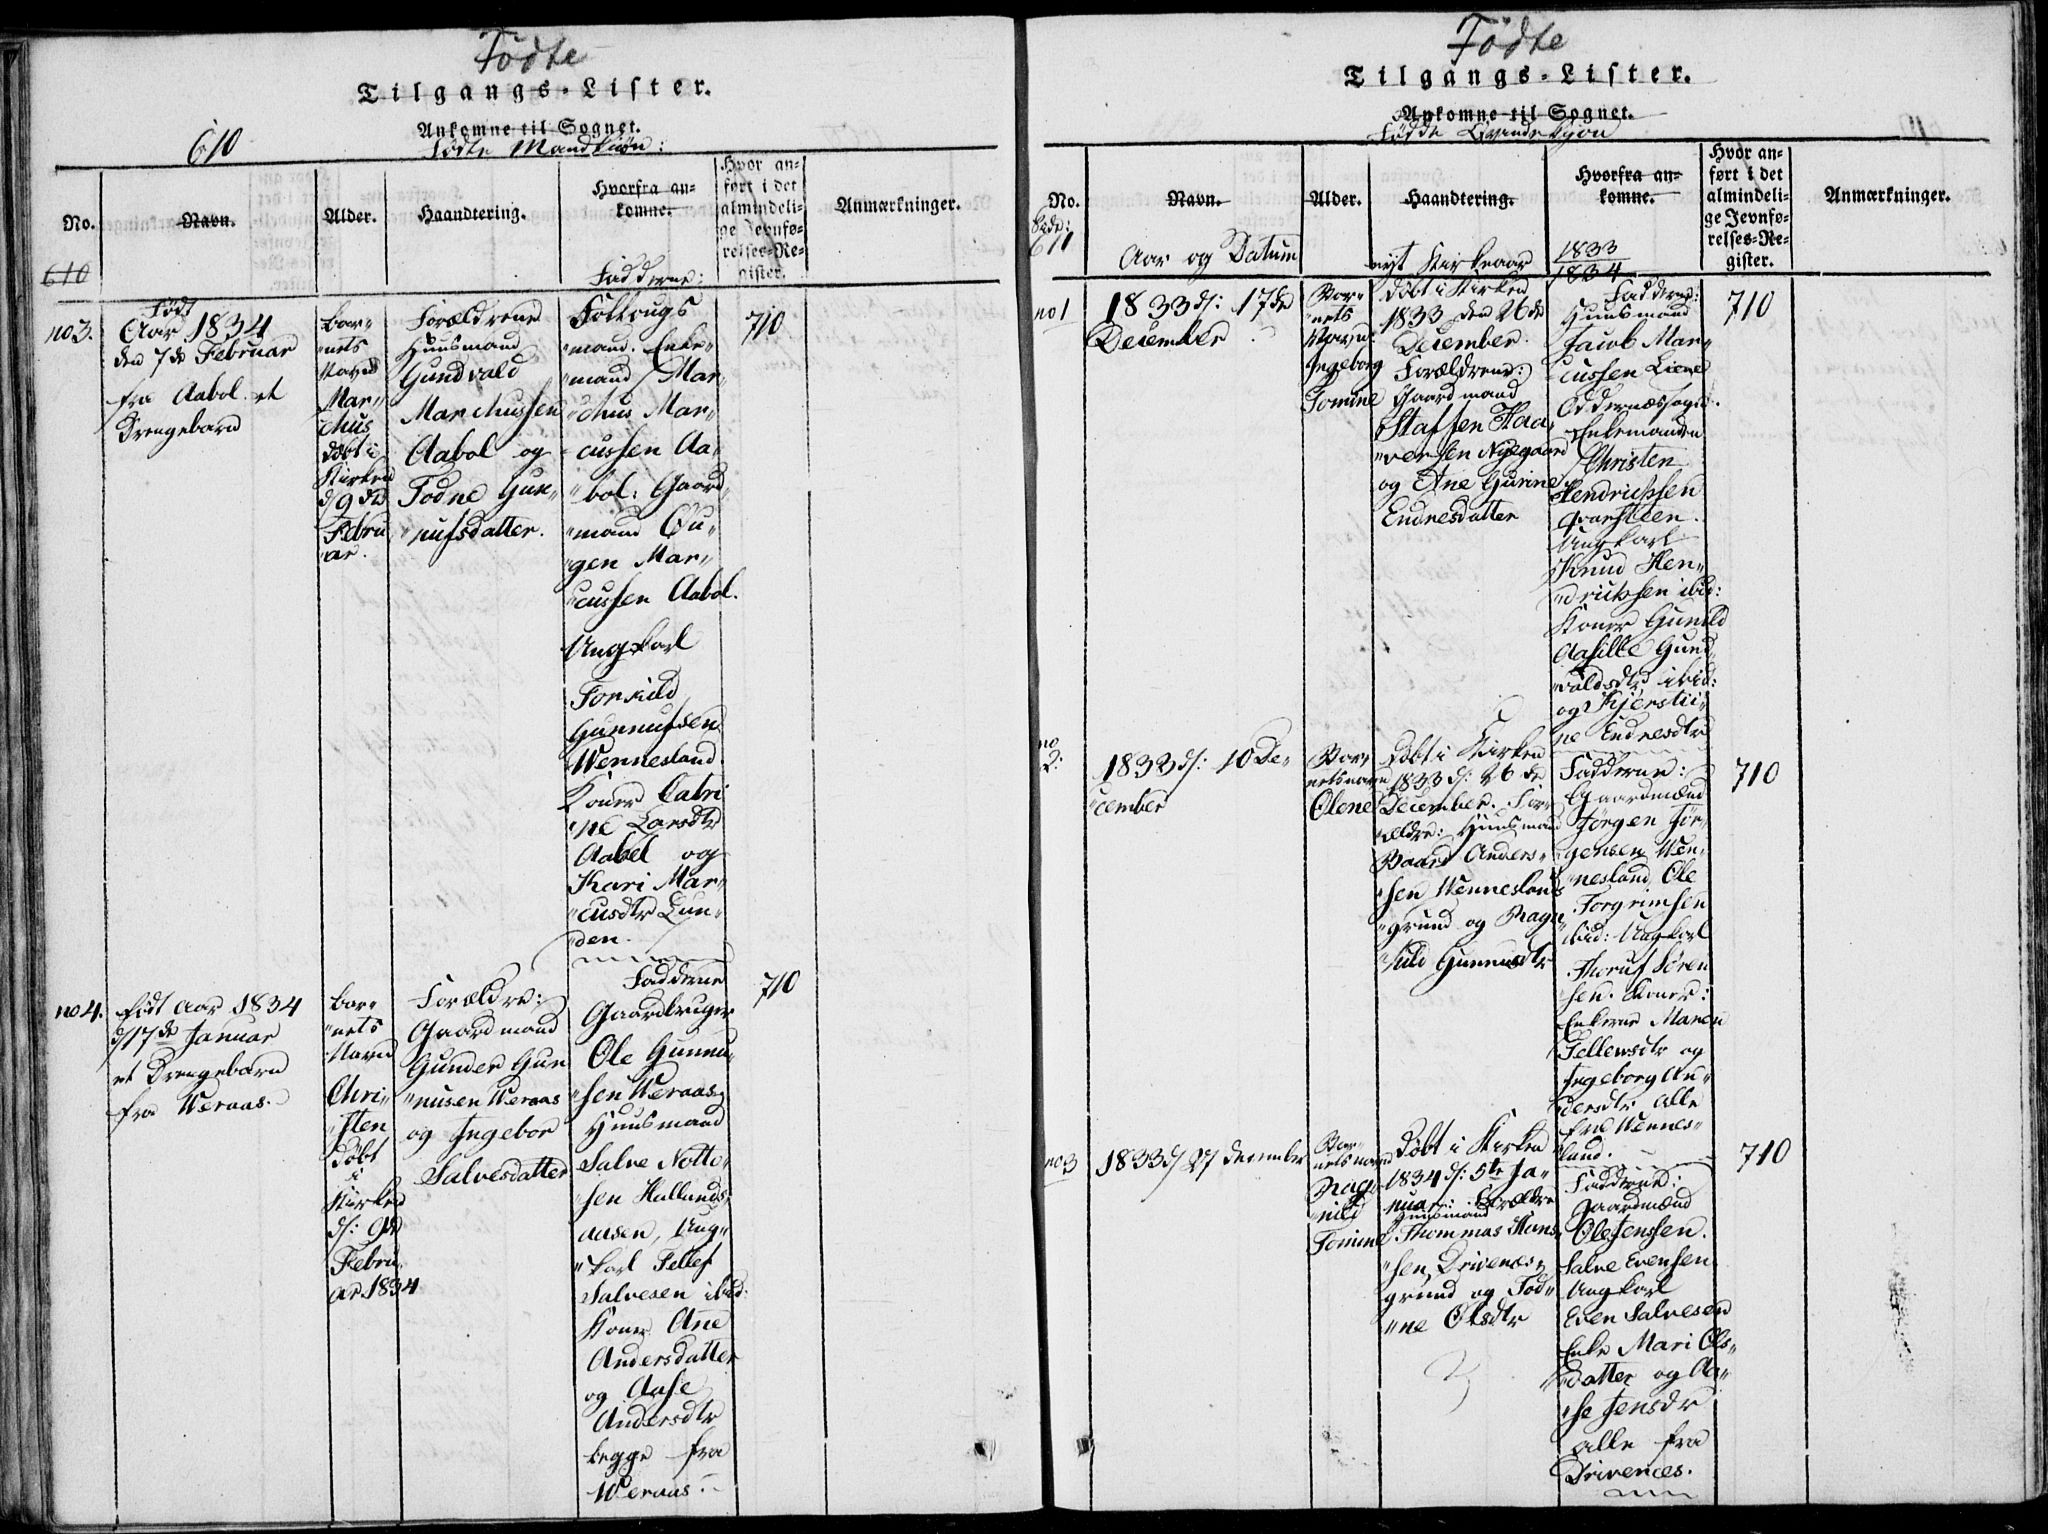 Födte
Tilgangs-Lister.
Ankomne til Sognet.
610
Födte Mandkiøn:
No.
Navn.
Alder.
Haandtering.
Hvorfra an-
komne.
Hvor an-
ført i det
almindeli-
ge Jevnfø-
relses-Re-
gister.
Anmærkninger.
610
Fadderne:
no 3.
Född
Aar 1834
den 7de Februar
fra Aabol et
Drengebarn
Bar-
nets
Navn
Mar-
chus
döbt i
Kirken
d/9de
Febru
ar.
Forældrene
Huusmand
Gundvald
Marchussen
Aabol og
Todne Gun-
nufsdatter.
Folkrugs
mand. Enke-
mand Mar-
chus Mar-
cussen Aa-
bol: Gaard-
mand Ou-
gen Mar-
cussen Aabol.
Ungkarl
Torkild
Gunnufsen
Wennesland
Koner Catri
ne Larsdtr
Aabel og
Kari Mar-
cusdtr Lun-
den.
710
no 4.
født Aar 1834
d/17de Januar
et Drengebarn
fra Weraas.
Bar-
nets
Navn
Chri-
sten
döbt
i
Kirken
d/: 9de
Febru-
ar 1834
Forældre:
Gaardmand
Gunder Gun
nusen Weraas
og Ingebor
Salvesdatter
Fadderne
Gaardbruger
Ole Gunnu-
sen Weraas,
Huusmand
Salve Notto-
sen Hallands-
aasen, Ung-
karl Tellef
Salvesen ibid:
Koner Ane
Andersdatter
og Aase
Andersdtr
begge fra
Weraas.
710
Födte
Tilgangs-Lister.
Ankomne til Sognet.
Födde Qvindekyøn
611
No.
Navn.
Alder.
Haandtering.
Hvorfra an-
komne.
Hvor an-
ført i det
almindeli-
ge Jevnfø-
relses-Re-
gister.
Anmærkninger.
611
Aar og Datum
nyt Kirkeaar
1833
1834
no 1
1833 d/: 17de
December
Bar-
nets
Navn
Ingeborg
Tomine
Döbt i Kirken
1833 den 26de
December.
Forældrene:
Gaardmand
Staffen Haa-
versen Nyegaard
og Ane Gurine
Endresdatter
Fadderne:
Huusmand
Jacob Mar-
cussen Liene
Oddernæssogn.
Enkemanden
Christen
Hendrichsen
Qvarsteen.
Ungkarl
Knud Hen-
drichsen ibid:
Koner Gunild
Aasille Gund-
valdsdtr ibid:
og Kjersti-
ne Endresdtr
710
no
2:
1833 d/: 10 De-
cember
Bar-
nets navn
Olene
Döbt i Kirken
1833 d/: 26de
December. For-
ældre: Huusmand
Baard Anders-
sen Wenneslands
grund og Ragn-
hild Gunnusdtr
Fadderne:
Gaardmænd
Jørgen Jör-
gensen Wen-
nesland, Ole
Torgrimsen
ibid: Ungkarl
Thoruf Sören
sen. Koner:
Enkerne Maren
Tellewsdtr og
Ingeborg An-
dersdtr alle
fra Wennes-
land.
710
no 3
1833 d/ 27 December
Bar-
nets navn
Rag-
nild
Tomine
Döbt i Kirken
1834 d/: 5te Ja-
nuar: Forældre
Huusmand
Thommas Hans-
sen, Drivenes,
grund og Tod-
ne Olsdtr
Fadderne:
Gaardmænd
Ole Jenssen.
Salve Evensen
Ungkarl
Even Salvesen
Enke Mari Ols-
datter og Aa-
se Jensdr
alle fra
Drivenes.
710